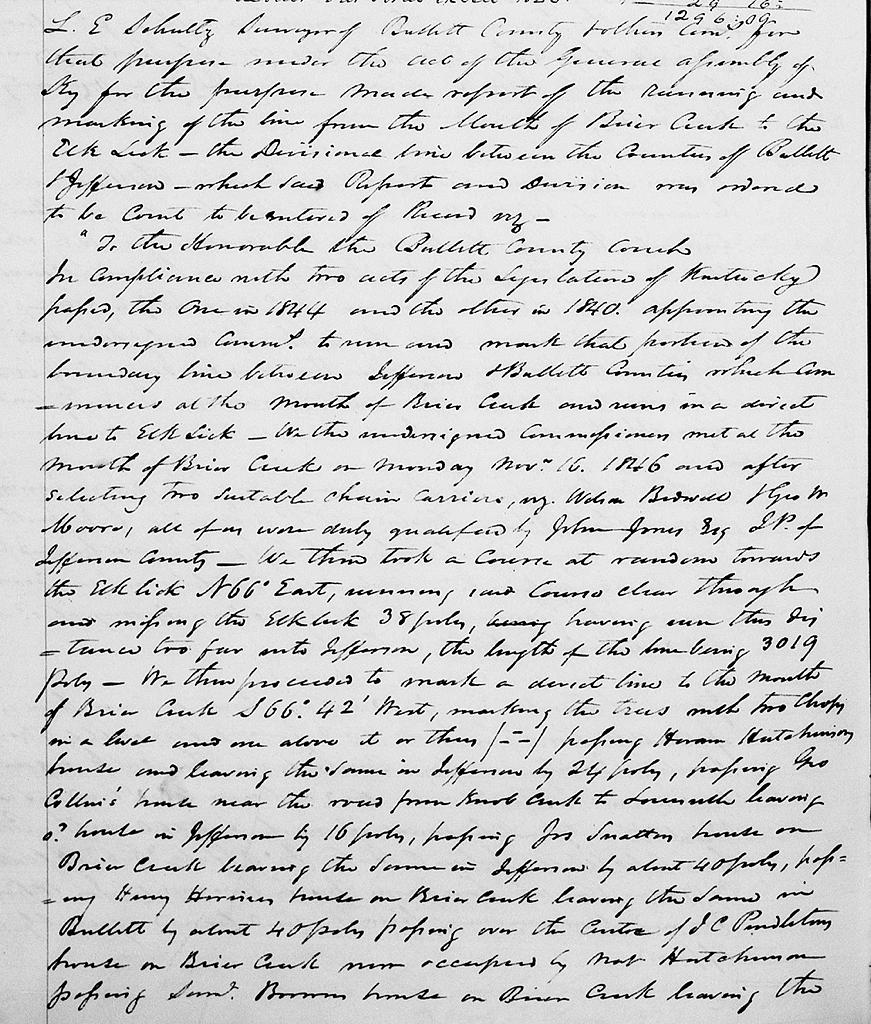 29 16:
1296:09
L. E Schultz Surveyor of Bullett County & others Comrs. for
that purpose under the act of the General assembly of
Ky for the purpose made report of the running and
marking of the line from the Mouth of Brier Creek to the
Elk Lick – the Divisional line between the Counties of Bullett
& Jefferson – which said Report and Division was ordered
to be Court to be entered of Record viz –
"To the Honorable the Bullett County Court
In Compliance with two acts of the Legislature of Kentucky
passed, the One in 1844 and the other in 1840. appointing the
undersigned Commrs. to run and mark that portion of the
boundary line between Jefferson & Bullett Counties which Com
=mences at the Mouth of Brier Creek and runs in a direct
line to Elk Lick – We the undersigned Commissioners met at the
Mouth of Brier Creek on Monday Novr. 16. 1846 and after
selecting two suitable chain carriers, viz. Wilson Bidwell & Geo W
Moore, all of us were duly qualified by John Jones Esq J.P. of
Jefferson County – We then took a Course at random towards
the Elk lick N 66° East, running said Course clear through
and missing the Elk lick 38 poles, being having run this dis
=tance too far into Jefferson, the length of the line being 3019
Poles – We then proceeded to mark a direct line to the Mouth
of Brier Creek S 66°. 42' West, marking the trees with two Chops
in a level and one above it or thus |-̄-| passing Hiram Hutchinsons
house and leaving the same in Jefferson by 24 poles, passing Geo
Collins's house near the road from Knob Creek to Louisville leaving
sd. house in Jefferson by 16 poles, passing Jos house on
Brier Creek leaving the same in Jefferson by about 40 poles, pass=
=ing Henry house on Brier Creek leaving the same in
Bullett by about 40 poles passing over the Centre of J C Pendletons
house on Brier Creek now occupied by Nat Hutchinson
passing Saml. house on Brier Creek leaving the